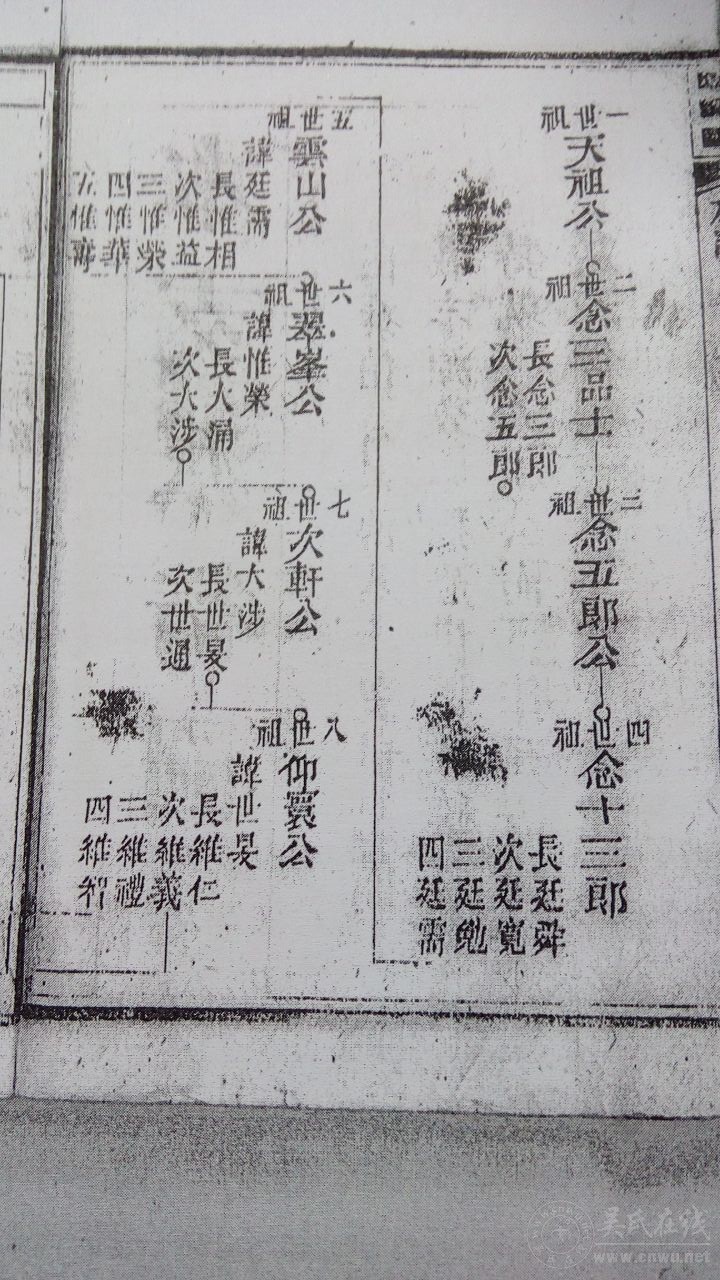 一世祖
天祖公
二世祖
念三品士
長念三郎
次念五郎
三世祖
念五郎公
四世祖
念十三郎
長廷舜
次廷寬
三廷勉
四廷需
五世祖
雲山公
諱廷需
長惟相
次惟益
三惟榮
四惟華
五惟
六世祖
翠峯公
諱惟榮
長大涌
次大涉
七世祖
次軒公
諱大涉
長世旻
次世通
八世祖
仰寰公
諱世旻
長維仁
次維義
三維禮
四維智
吴氏在线
www.cnwu.net